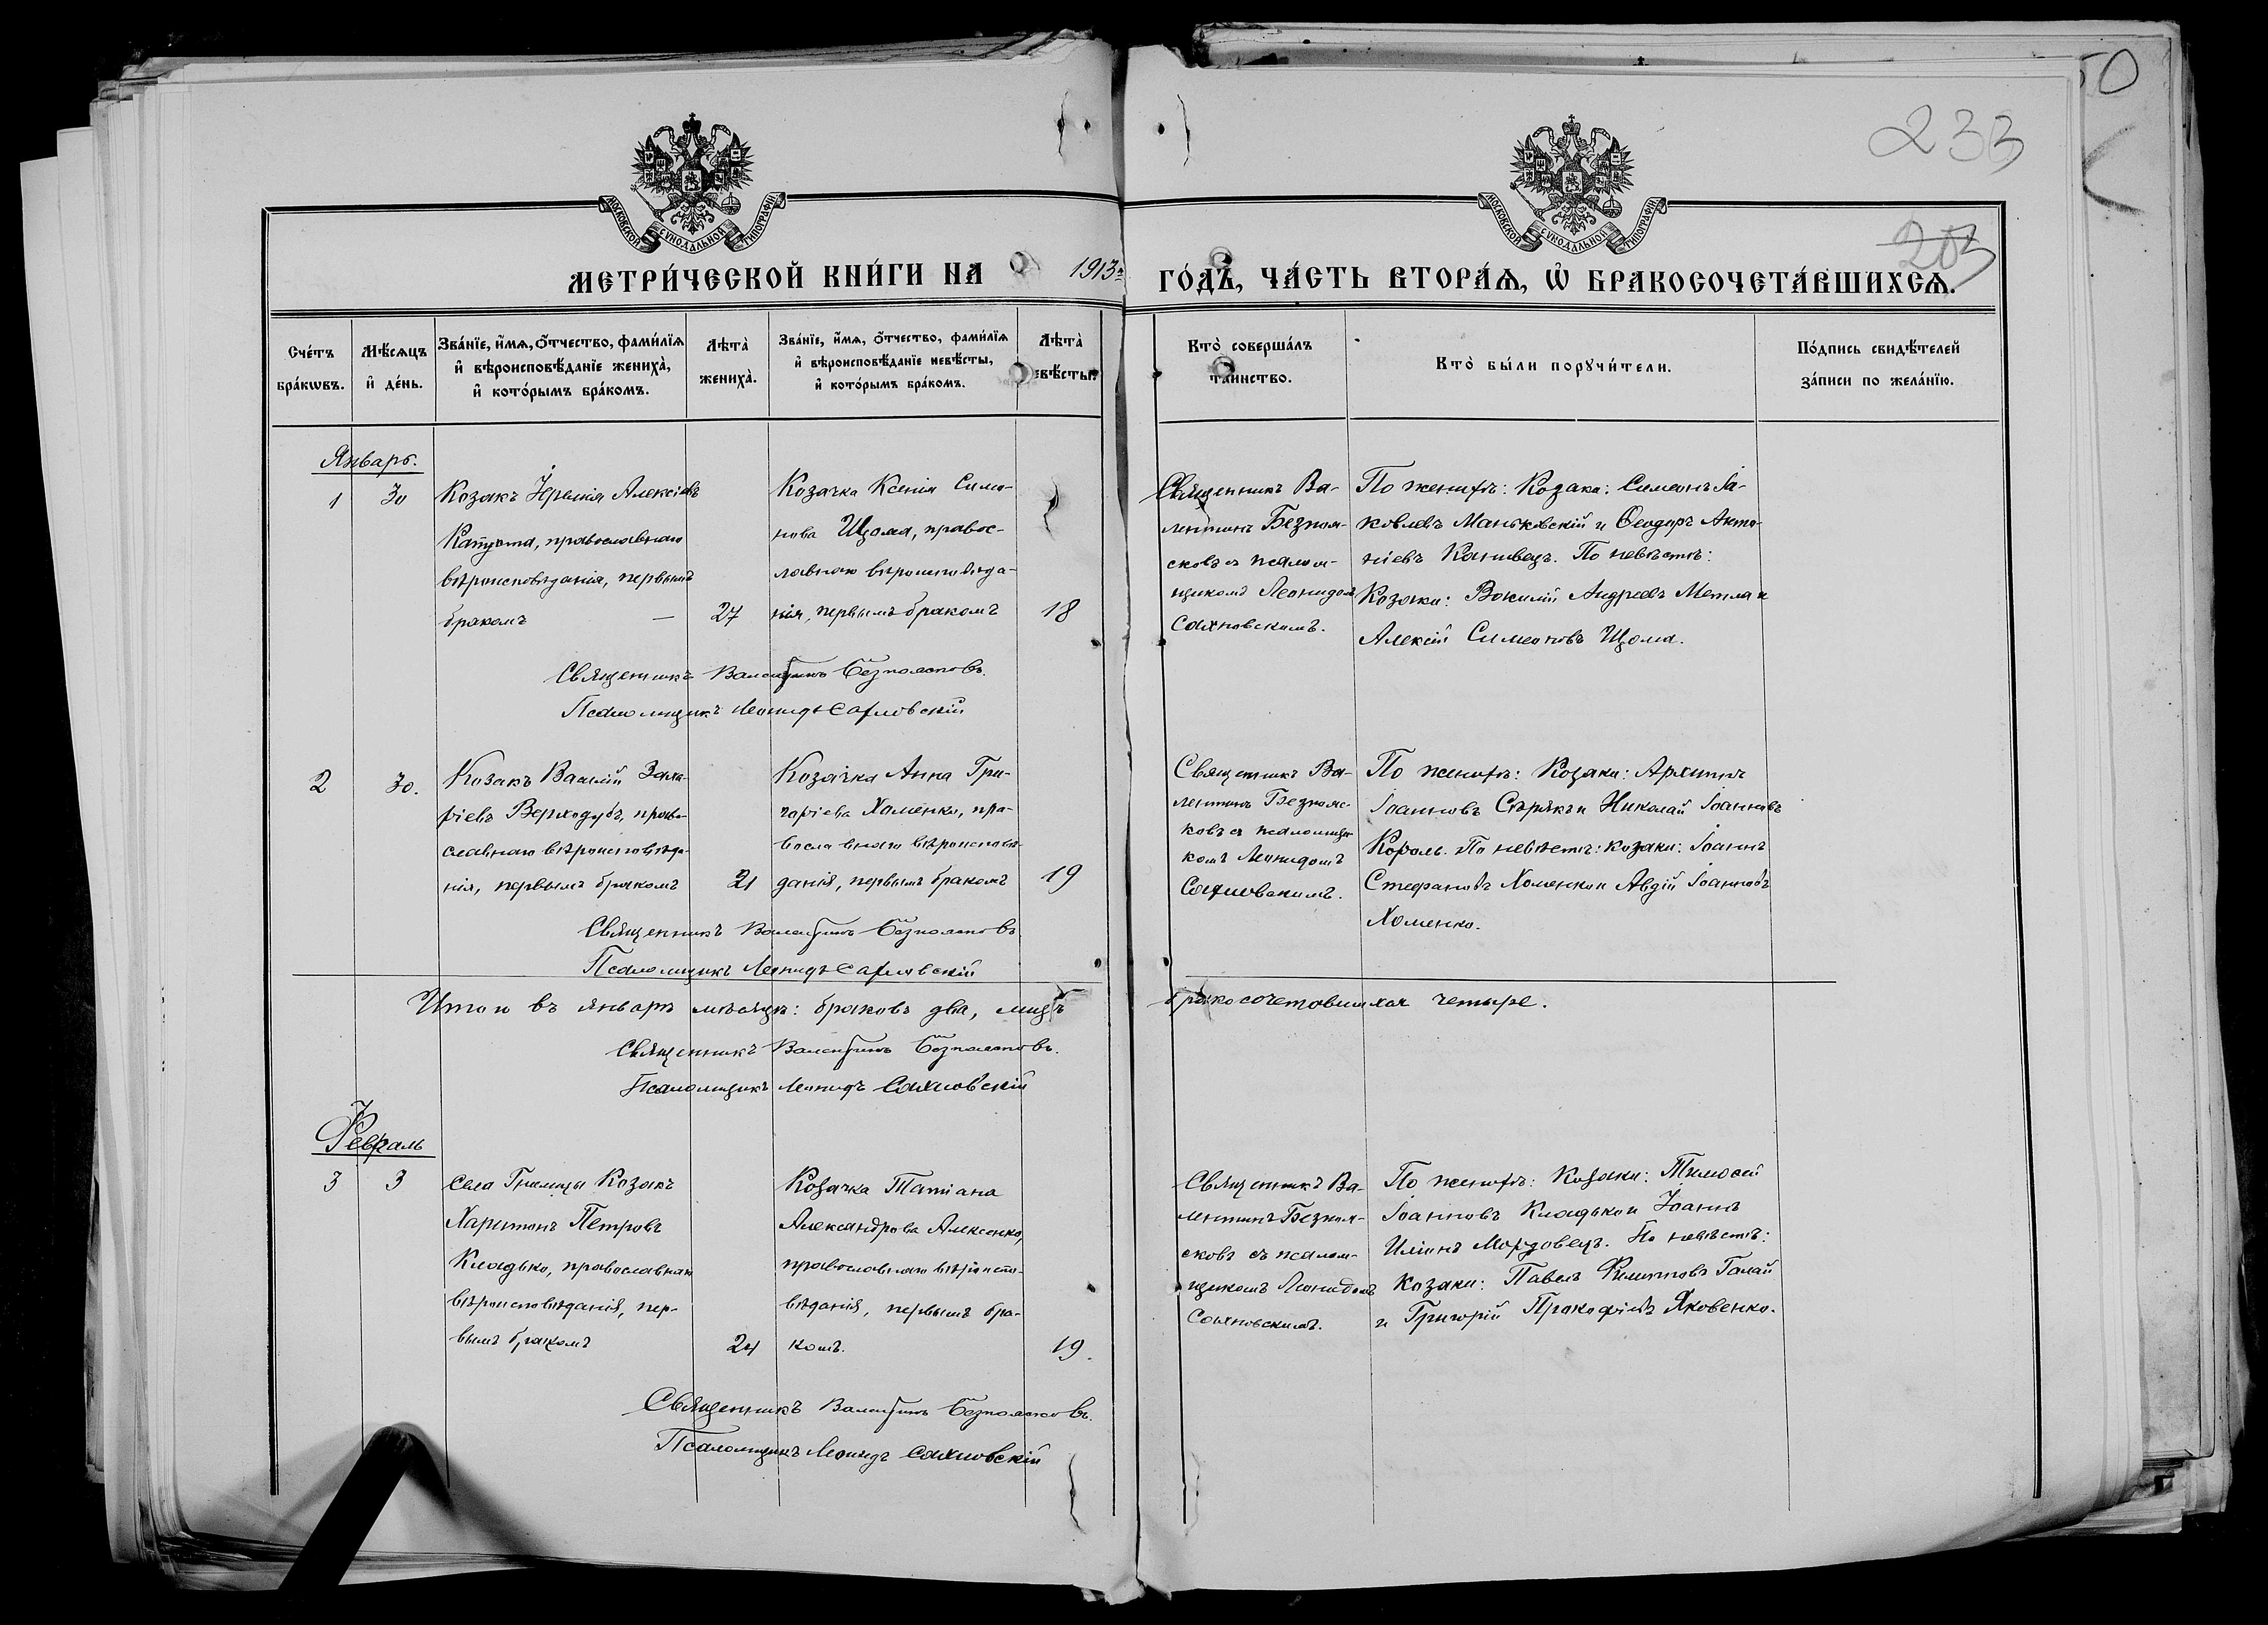 50
233
203
МОСКОВСКОЙ СУНОДАЛЬНОЙ ТИПОГРАФІИ
МОСКОВСКОЙ СУНОДАЛЬНОЙ ТИПОГРАФІИ
МЕТРИ́ЧЕСКОЙ КНИ́ГИ НА 1913 ГО́ДЪ, ЧА́СТЬ ВТОРА́Ѧ, Ѡ҆ БРАКОСОЧЕТА́ВШИХСѦ.
Сче́тъ бра́кѡвъ.
Мѣ́сѧцъ и҆ де́нь.
Зва́нїе, и҆́мѧ, ѻ҆́тчество, фами́лїѧ и҆ вѣроисповѣ́данїе жениха̀, и҆ кото́рымъ бра́комъ.
Лѣ́та̀ жениха̀.
Зва́нїе, и҆́мѧ, ѻ҆́тчество, фами́лїѧ и҆ вѣроисповѣ́данїе невѣ́сты, и҆ кото́рымъ бра́комъ.
Лѣ́та̀ невѣ́сты.
Кто̀ соверша́лъ та́инство.
Кто̀ бы́ли порꙋчи́тели.
По́дпись свидѣ́телей за́писи по жела́нїю.
Январь.
1
30
Козакъ Іеремія Алексіевъ
Капуста, православнаго
вѣроисповѣданія, первымъ
бракомъ —
27
Козачка Ксенія Симо-
нова Щома, правос-
лавнаго вѣроисповѣда-
нія, первымъ бракомъ
18
Священникъ Ва-
лентинъ Безпом-
сковъ съ псалом-
щикомъ Леонидомъ
Сахновскимъ.
По женихѣ: Козаки: Симеонъ Іа-
ковлевъ Маньковскій и Ѳеодоръ Анто-
ніевъ Канивецъ. По невѣстѣ:
Козаки: Василій Андреевъ Метла и
Алексій Симеоновъ Щома.
Священникъ Валентинъ
Псаломщикъ Леонидъ Сахновскій
2
30.
Козакъ Василій Заха-
ріевъ Верходубъ, право-
славнаго вѣроисповѣда-
нія, первымъ бракомъ
21
Козачка Анна Гри-
горіева Хоменко, пра-
вославнаго вѣроисповѣ-
данія, первымъ бракомъ
19
Священникъ Ва-
лентинъ
ковъ съ псаломщи-
комъ Леонидомъ
Сахновскимъ.
По женихѣ: Козаки: Архиппъ
Іоанновъ Сѣрякъ и Николай Іоанновъ
Король. По невѣстѣ: козаки: Іоаннъ
Стефановъ Хоменко и Авдій Іоанновъ
Хоменко.
Священникъ Валентинъ
Псаломщикъ Леонидъ Сахновскій
Итого въ январѣ мѣсяцѣ: браковъ два, лицъ бракосочетавшихся четыре.
Священникъ Валентинъ
Псаломщикъ Леонидъ Сахновскій
Февраль
3
3
Села Гнилицы Козакъ
Харитонъ Петровъ
Кладько, православнаго
вѣроисповѣданія, пер-
вымъ бракомъ
24
Козачка Татіана
Александрова Алексенко,
православнаго вѣроиспо-
вѣданія, первымъ бра-
комъ.
19.
Священникъ Ва-
лентинъ
сковъ съ псалом-
щикомъ Леонидомъ
Сахновскимъ.
По женихѣ: Козаки: Тимоѳей
Іоанновъ Кладько и Іоаннъ
Иліинъ Мордовецъ. По невѣстѣ:
Козаки: Павелъ Филипповъ Галай
и Григорій Прокофіевъ Яковенко.
Священникъ Валентинъ
Псаломщикъ Леонидъ Сахновскій